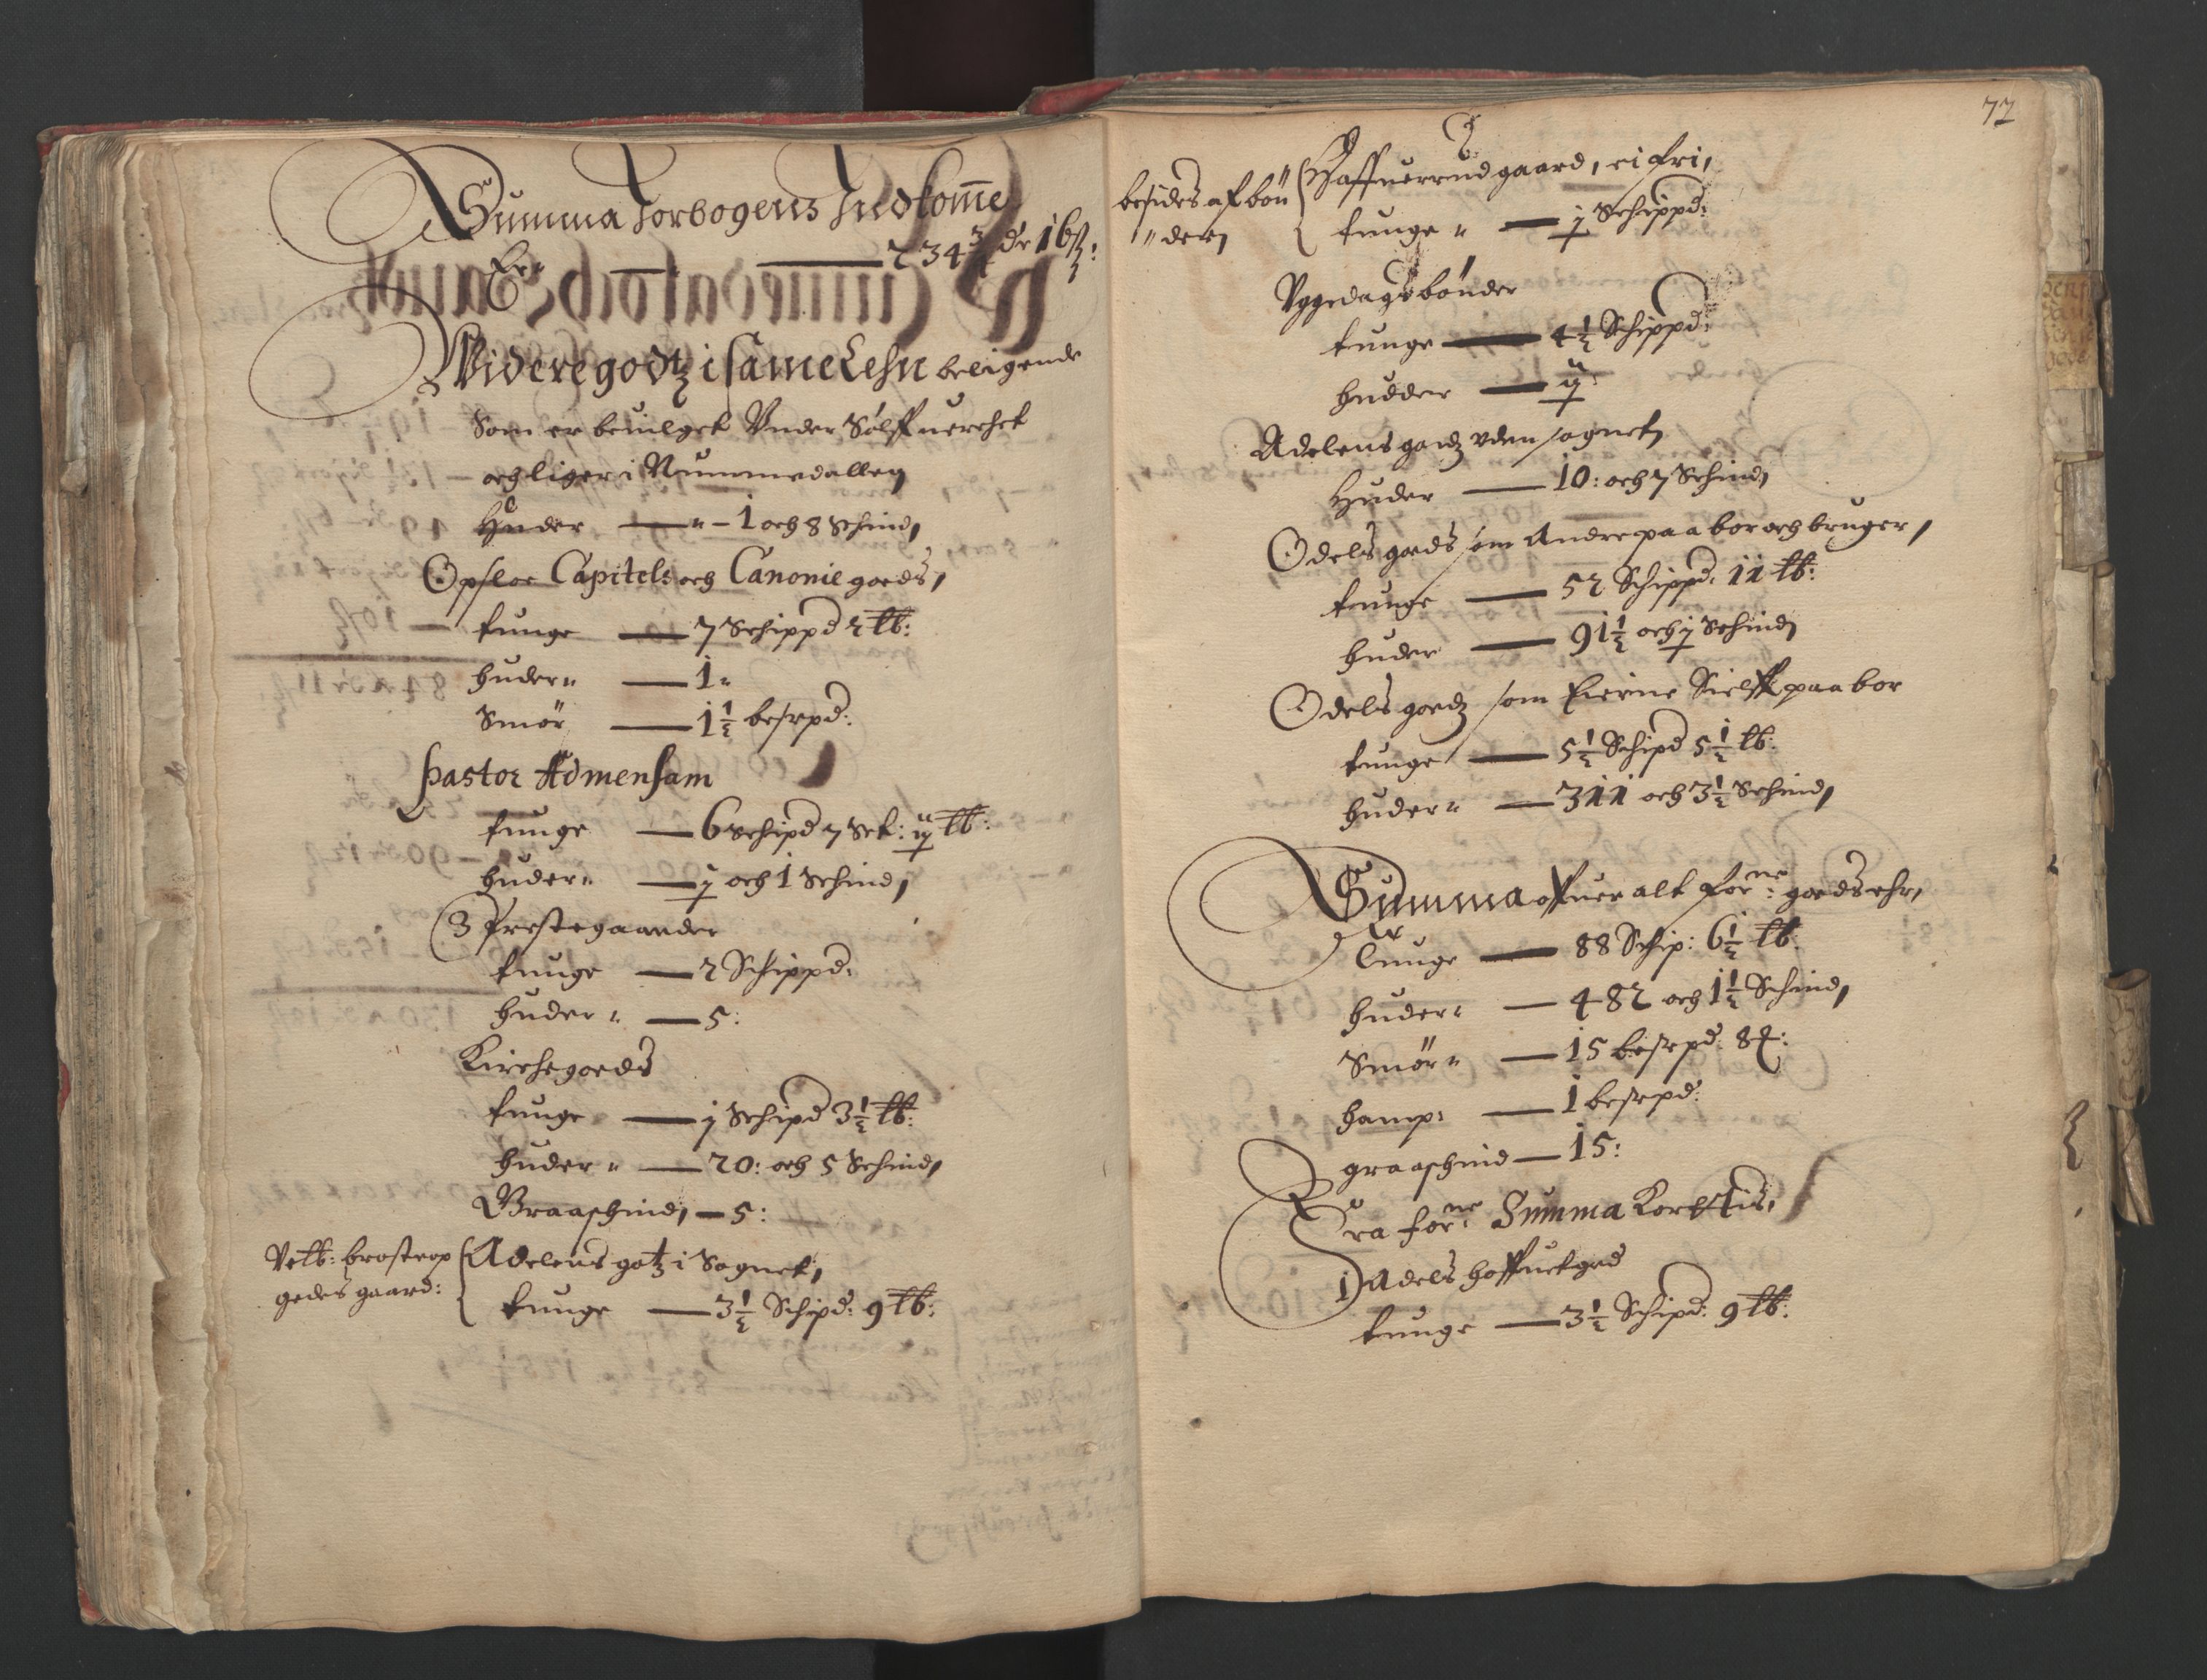 Summa Jorbogens Indkom̄e
Er — 234 3/4 dr 16 ß:
Videre godtz i same Lehn beligende
Som er beuilget Vnder Sølffuerchet
och liger i Nummedallen
Huder — 1 och 8 Schind,
Opsloe Capitels och Canonie goeds,
tunge — 7 Schippd 2 tb:
huder — 1
Smør — 1 1/2 besrpd:
Pastor Admensam
tunge — 6 Schipd 7 Set: ij tb:
huder — j och 1 Schind,
3 Prestegaarder
tunge — 2 Schippd:
huder — 5:
Kirchegoeds
tunge — j Schipd 3 1/2 tb:
huder — 20: och 5 Schind,
Graaschind, — 5:
Velb: brostrop
gedes gaard:
Adelens gotz i Sognet,
tunge — 3 1/2 Schipd: 9 tb:
77
besides af bøn
der
Haffuerrud gaard, ei fri,
tunge — j Schippd:
Vggedags bønder
tunge — 4 1/2 Schippd:
hudder — ij:
Adelens godz vden sognet
Huder — 10: och 7 Schind,
Odels goeds som Andre paa bor och bruger,
tunge — 52 Schippd: 11 tb:
huder — 91 1/2 och j Schind
Odels goedz som Eierne Sielff paa bor
tunge — 5 1/2 Schipd 5 1/2 tb:
huder — 311 och 3 1/2 Schind,
Summa offuer alt forne: goeds ehr,
tunge — 88 Schip: 6 1/2 tb:
huder — 482 och 1 1/2 Schind,
Smør — 15 besrpd: 8
hamp: — 1 besrpd:
graaschind — 15:
Fra forne: Summa Kortis,
1 Adels hoffuetgrd
tunge — 3 1/2 Schipd: 9 tb: